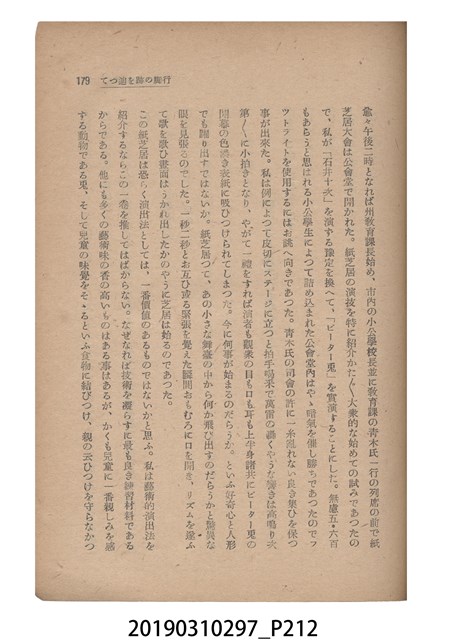 179 てつ追を跡の脚行
愈々午後二時となれば州敎育課長始め、市內の小公學校長並に敎育課の靑木氏一行の列席の前で紙
芝居大會は公會堂で開かれた。紙芝居の演技を特に紹介かた〴〵大衆的な始めての試みであつたの
で、私が「石井十次」を演ずる豫定を換へて、「ピーター兎」を實演することにした。無慮五・六百
もあらうと思はれる小公學生によつて詰め込まれた公會堂內はやゝ暗氣を催し勝ちであつたのでフ
ツトライトを使用するにはお誂へ向きであつた。靑木氏の司會の許に一糸亂れない良き集ひを保つ
事が出來た。私は例によつて反切にステージに立つと拍手喝采で萬雷の轟くやうな響きは高鳴り次
第〳〵に小拍きとなり、やがて一禮をすれば演者も觀衆の目も口も耳も上半身諸共にピーター兎の
開幕の色濃き表紙に吸ひつけられてしまつた。今に何事が始まるのだらうか。といふ好奇心と人形
でも踊り出すではないか。紙芝居つて、あの小さな舞臺の中から何か飛び出すのだらうかと無邪な
眼を見張るのでした。一秒二秒とお互ひ凌る緊張を覺えた瞬間おもむろに口を開き、リズムを運ぶ
て歌を歌ひ畫面はうかれ出したかのやうに芝居は始るのであつた。
この紙芝居は恐らく演出法としては、一番價値のあるものではないかと思ふ。私は藝術的演出法を
紹介するならこの一卷を推してはばからない。なぜなれば技術を凝らすに最も良き練習材料である
からである。他にも多くの藝術味の香の高いものはある事はあるが、かくも兒童に一番親しみを感
ずる動物である兎、そして兒童の味覺をそゝるといふ食物に結びつけ、親の云ひつけを守らなかつ
20190310297_P212